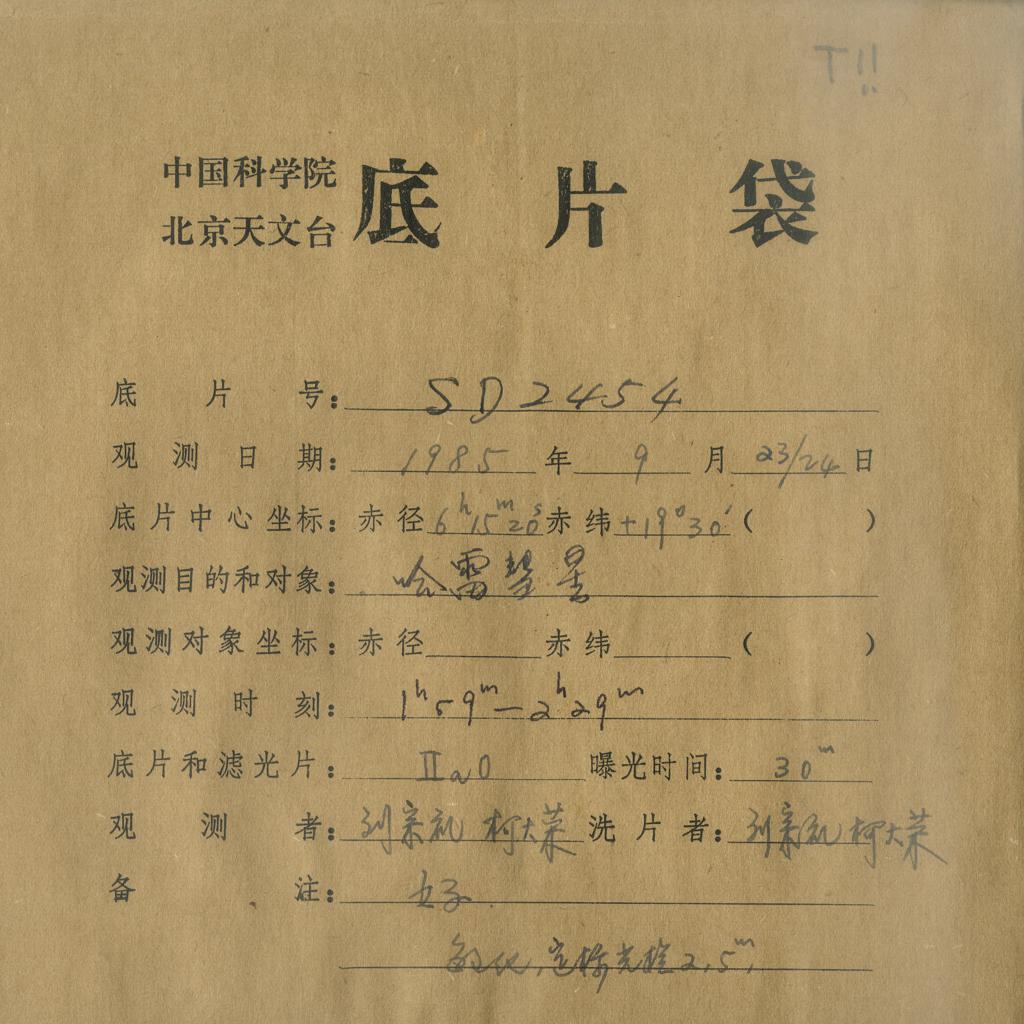 中国科学院
北京天文台 底片袋
底片号：SD2454
观测日期：1985年9月23/24日
底片中心坐标：赤径6ʰ15ᵐ20ˢ赤纬+19°30′（ ）
观测目的和对象：哈雷彗星
观测对象坐标：赤径 赤纬 （ ）
观测时刻：1ʰ59ᵐ—2ʰ29ᵐ
底片和滤光片：ⅡaO 曝光时间：30ᵐ
观测者：刘宗礼 柯大荣 洗片者：刘宗礼 柯大荣
备注：好.
敏化，定标光楔2.5ᵐ，